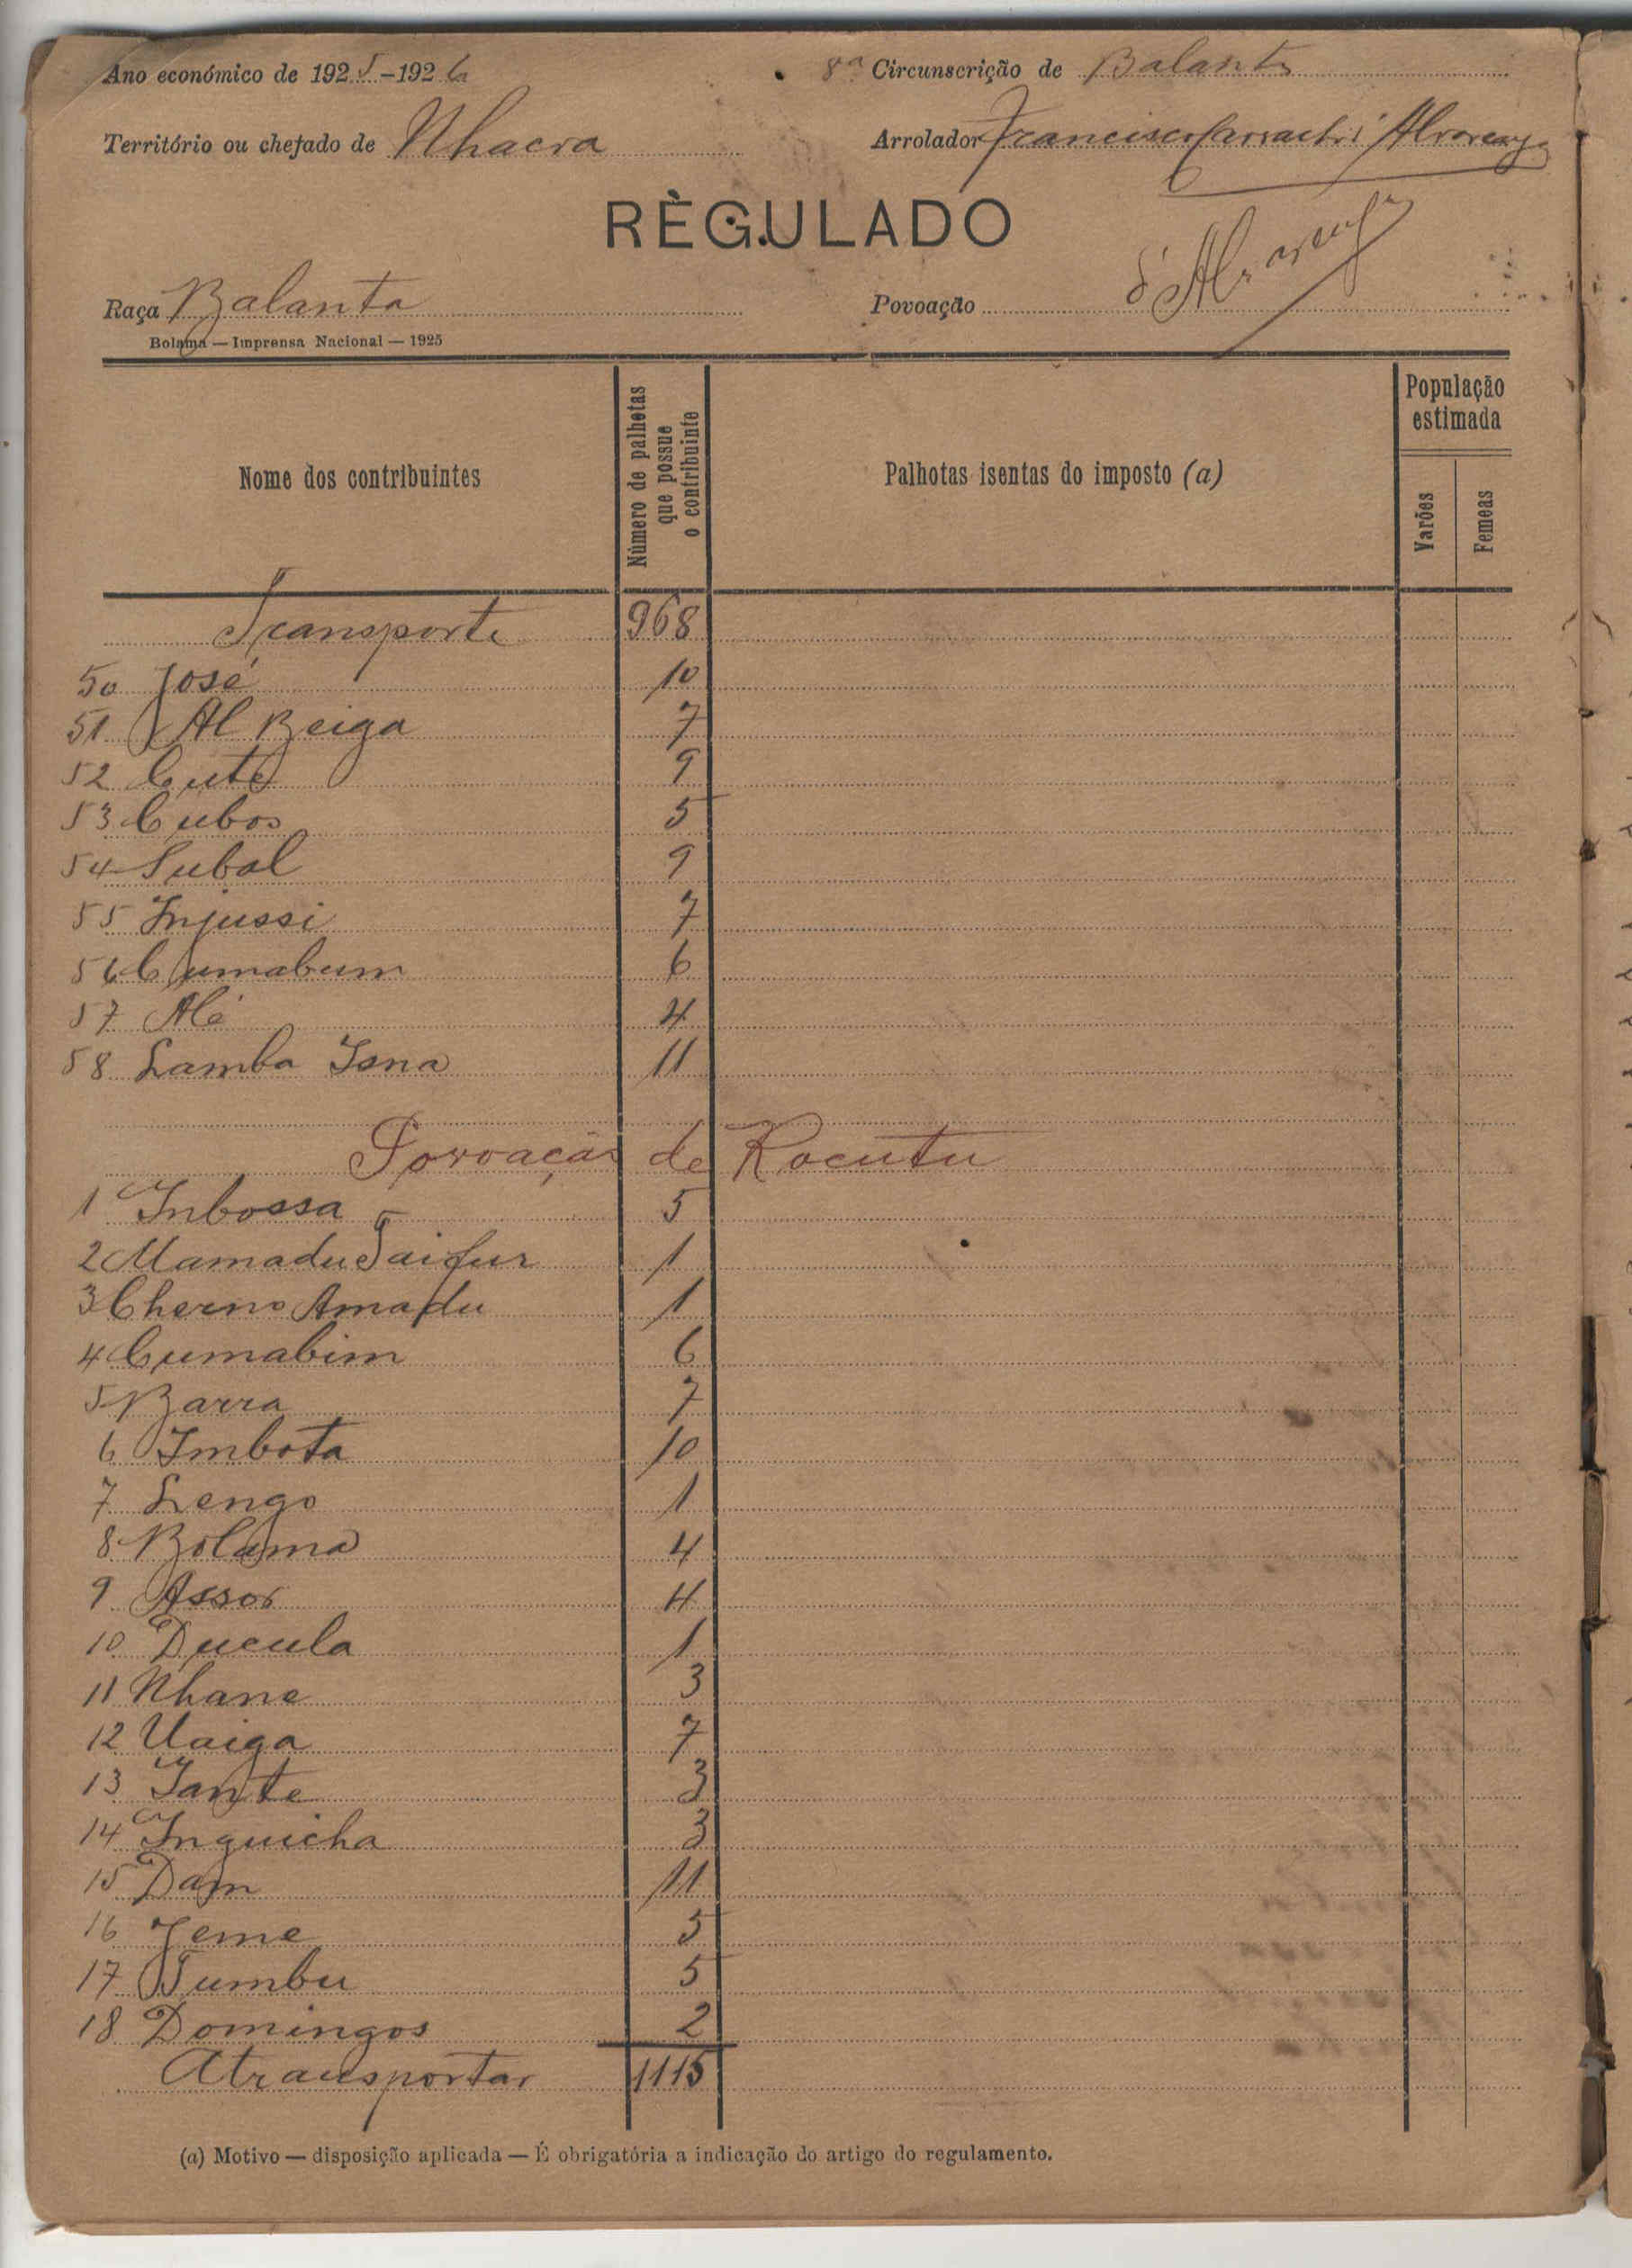 Ano económico de 1925-1926
8ª Circunscrição de Balanta
Território ou chefado de Nhacra
Arrolador Francisco Alvarenga
REGULADO
d'Alvarenga
Raça Balanta
Povoação
Bolama — Imprensa Nacional — 1925
Nome dos contribuintes
Número de palhotas que possue o contribuinte
Palhotas isentas do imposto (a)
População estimada
Varões
Femeas
Transporte 968
50 José 10
51 Al Beiga 7
52 Cute 9
53 Cubos 5
54 Subal 9
55 Injussi 7
56 Cumabum 6
57 Alé 4
58 Lamba Isna 11
Povoação de Rocutu
1 Inbossa 5
2 Mamadu Saifur 1
3 Cherno Amadu 1
4 Cumabim 6
5 Barra 7
6 Imbota 10
7 Lengo 1
8 Bolama 4
9 Assor 4
10 Ducula 1
11 Nhane 3
12 Uaiga 7
13 Iante 3
14 Inguicha 3
15 Dam 11
16 Jeme 5
17 Tumbu 5
18 Domingos 2
A transportar 1115
(a) Motivo — disposição aplicada — É obrigatória a indicação do artigo do regulamento.